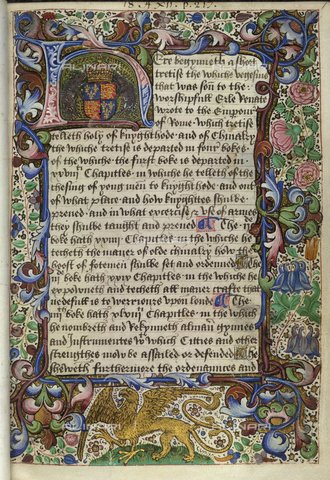 18. A. XII. p. 217.
ALINARI
Here begynneth a short
tretise the whiche vegesius
that was son to the
worshipfull Erle Renate
wrote to the Emperour
of Rome whiche tretise
telleth holy of knyghthode and of Chiualry
the whiche tretise is departed in four bokes
of the whiche the first boke is departed in
xxviij Chapitles in whiche he telleth of the
chesing of yong men to knyghthode and out
of what place and how knyghttes shulde be
preued and in what excercise & vse of armes
they shulbe taught and preued The
boke hath xxv Chapitles in the whiche he
techeth the maner of olde chiualry how the
hoost of fotemen shulbe set and ordeyned The
boke hath xxvj Chapitles in the whiche he
expowneth and techeth all maner crafte that
nedefull is to werrioure vpon londe The
iiij boke hath xlviij Chapitles in the whiche
he nombreth and rekynneth alman gynnes
and Instrumentes wt whiche Citties and other
strengthes may be assailed or defended he
sheweth furthermore the ordenances and